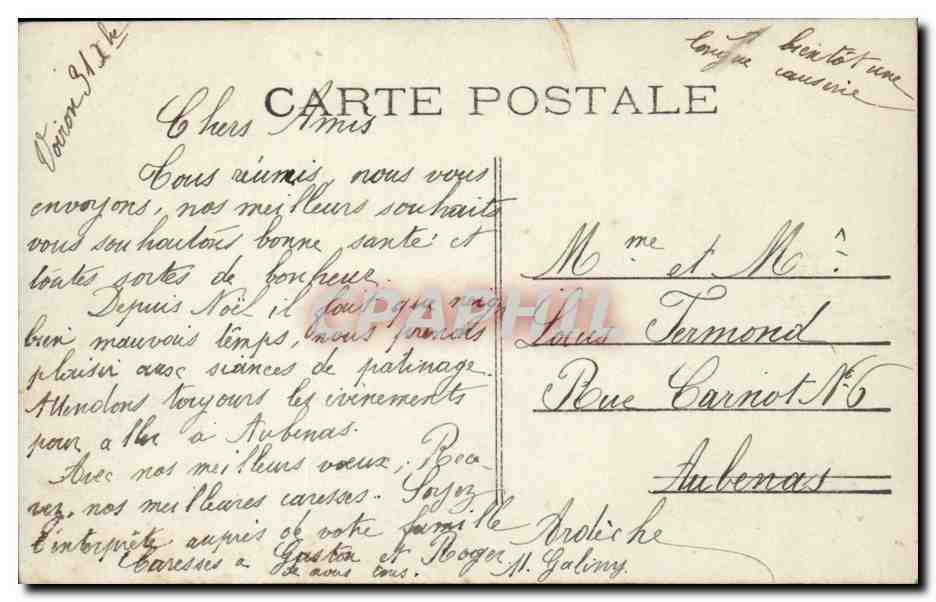 Voiron 31 Xbre
bientôt une
longue causerie
CARTE POSTALE
Chers Amis
Tous réunis, nous vous
envoyons, nos meilleurs souhaits
vous souhaitons bonne santé et
toutes sortes de bonheur.
Depuis Noël il fait que neige
bien mauvais temps, nous prends
plaisir avec siances de patinage.
Attendons toujours les évènements
pour aller à Aubenas.
Avec nos meilleurs voeux, Rece-
vez, nos meilleures caresses. Soyez
l'interprète auprès de votre famille
Caresses a Gaston et Roger
de nous tous.
M. Galiny.
Mme et Mr
Louis Termond
Rue Carnot No 6
Aubenas
Ardèche
CPAPHIL